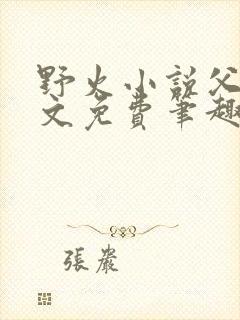 野火小説父
文免費筆趣
張嚴